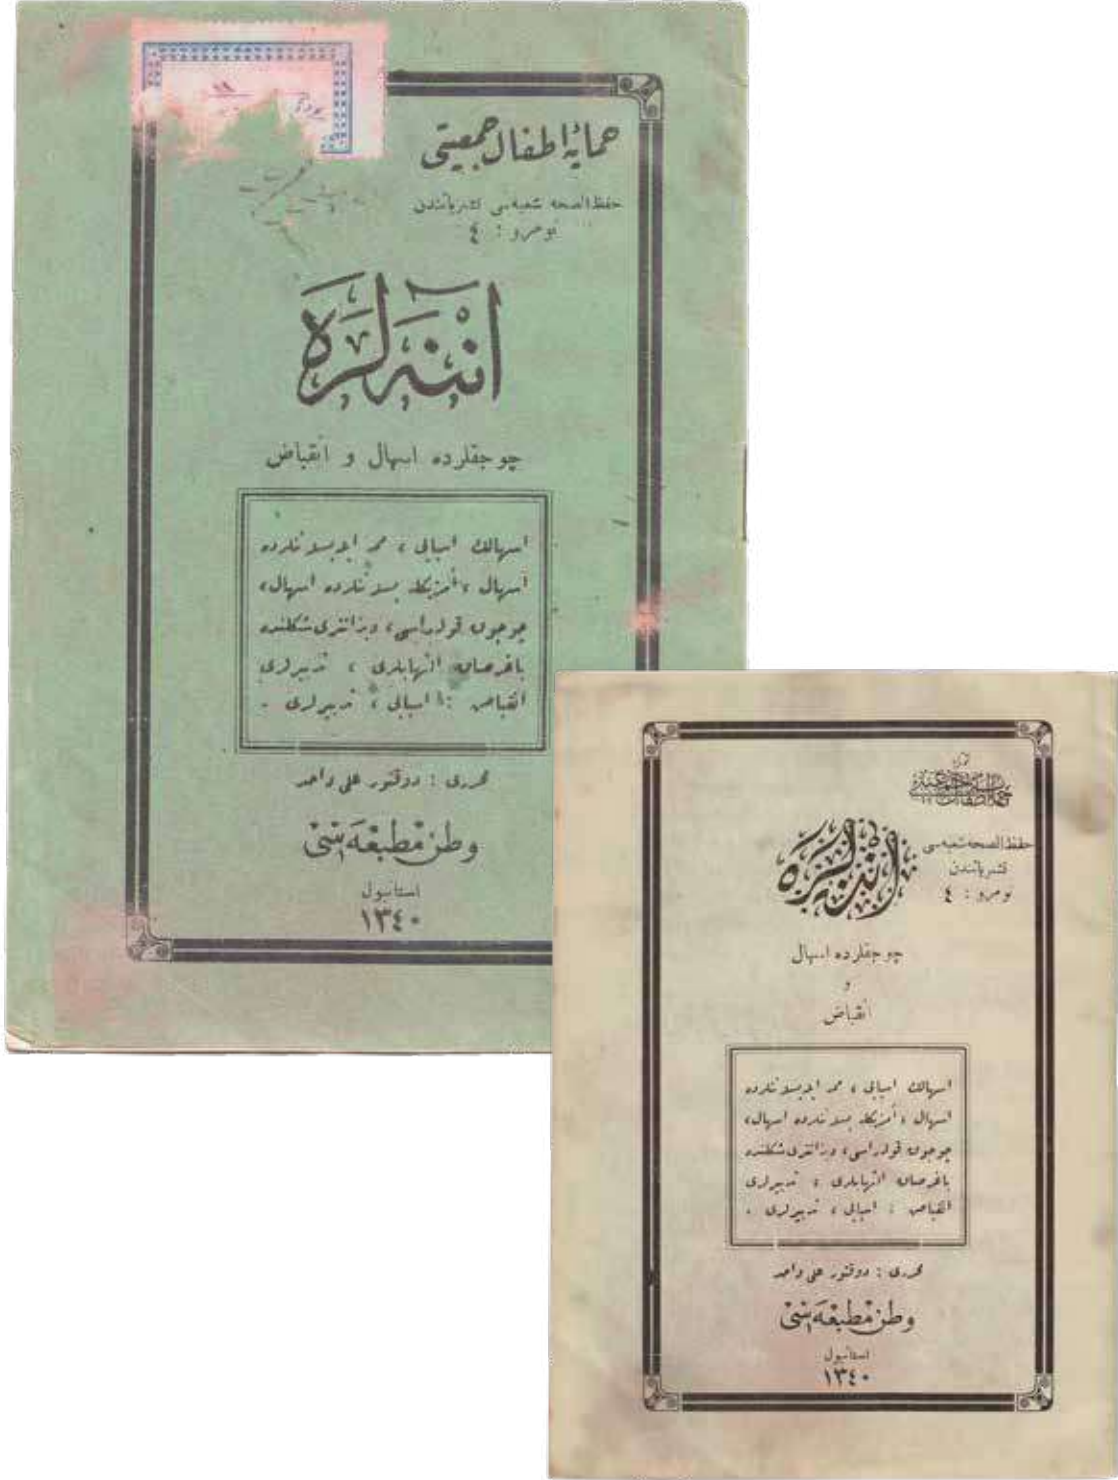 حمایۀ اطفال جمعیتی
حفظ الصحه شعبه‌سی نشریاتندن
نومرو : ٤
اننه‌لره
چوجقلرده اسهال و انقباض
اسهالك اسبابی ، ممه ایله بسلاننلرده
اسهال ، أمزیكله بسلاننلرده اسهال،
چوجوق قولراسی ، دیزانتری شكلنده
باغرصاق التهابلری ، تدبیرلری
انقباض : اسبابی ، تدبیرلری .
محرری : دوقتور علی واحد
وطن مطبعه‌سی
استانبول
١٣٤٠
حمایۀ اطفال جمعیتی
حفظ الصحه شعبه‌سی
نشریاتندن
نومرو : ٤
اننه‌لره
چوجقلرده اسهال
و
انقباض
اسهالك اسبابی ، ممه ایله بسلاننلرده
اسهال ، أمزیكله بسلاننلرده اسهال،
چوجوق قولراسی ، دیزانتری شكلنده
باغرصاق التهابلری ، تدبیرلری
انقباض : اسبابی ، تدبیرلری .
محرری : دوقتور علی واحد
وطن مطبعه‌سی
استانبول
١٣٤٠